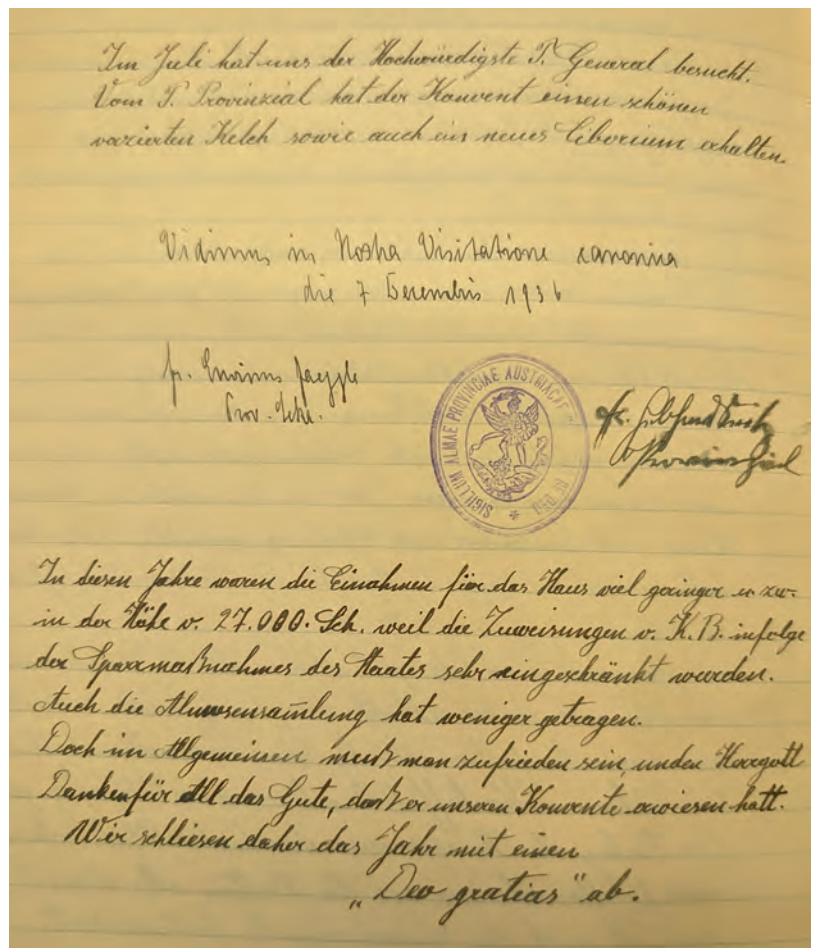 Im Juli hat uns der Hochwürdigste P. General besucht.
Vom P. Provinzial hat der Konvent einen schönen
verzierten Kelch sowie auch ein neues Ciborium erhalten.
Vidimus in Nostra Visitatione canonica
die 7 Decembris 1936
fr.
Prov. Sekr.
SIGILLUM ALMAE PROVINCIAE AUSTRIACAE
fr. Gebhard
Provinzial
In diesen Jahre waren die Einahmen für das Haus viel geringer u. zw.
in der Höhe v. 27.000. Sch. weil die Zuweisungen v. K.B. infolge
der Sparrmaßnahmes des Staates sehr eingeschränkt wurden.
Auch die Almosensam̄lung hat weniger getragen.
Doch im Allgemeinen muß man zufrieden sein, und den Herrgott
Danken für All das Gute, daß er unseren Konvente erwiesen hatt.
Wir schliesen daher das Jahr mit einen
„Deo gratias" ab.